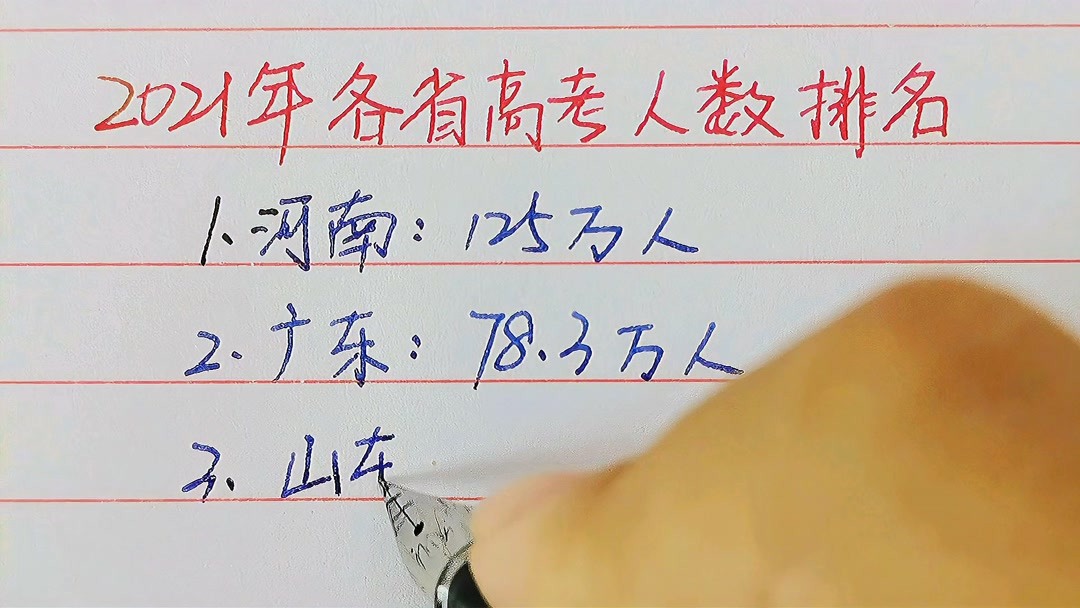 2021年各省高考人数排名
1.河南：125万人
2.广东：78.3万人
3.山东